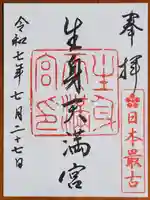 奉拝
日本最古
生身天満宮
生身
天満
宮印
令和七年七月二十七日